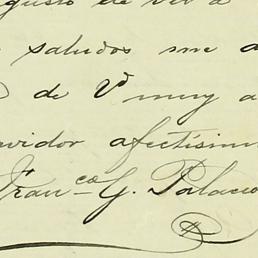 gusto de ver a
saludos me a
de Vd muy a
vidor afectísim
Fran.co G. Palacio